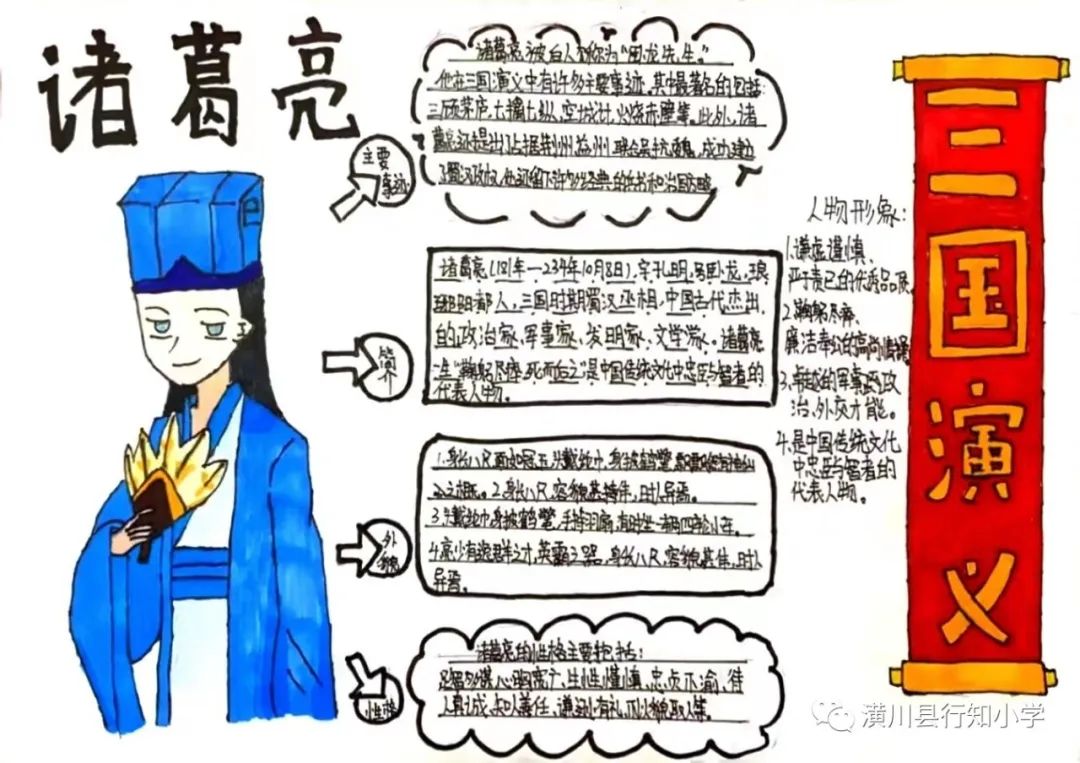 诸葛亮
主要
事迹
诸葛亮被后人称为“卧龙先生”。
他在三国演义中有许多主要事迹,其中最著名的包括:
三顾茅庐、七擒七纵、空城计、火烧赤壁等。此外,诸
葛亮还提出了占据荆州益州联合吴抗魏,成功建立
了蜀汉政权,他还留下许多经典的兵书和治国方略
简介
诸葛亮(181年—234年10月8日),字孔明,号卧龙,琅
琊阳都人,三国时期蜀汉丞相,中国古代杰出
的政治家、军事家、发明家、文学家。诸葛亮
一生“鞠躬尽瘁,死而后已”是中国传统文化中忠臣与智者的
代表人物。
外貌
1.身长八尺,面如冠玉,头戴纶巾,身披鹤氅
之概。2.身长八尺,容貌甚伟,时人异焉。
3.头戴纶巾,身披鹤氅,手持羽扇,有时坐一辆四轮小车。
4.亮少有逸群之才,英霸之器,身长八尺,容貌甚伟,时人
异焉。
性格
诸葛亮的性格主要包括:
足智多谋、心胸宽广、生性谨慎、忠贞不渝、待
人真诚、知人善任、谦逊有礼、不以貌取人等。
人物形象:
1.谦虚谨慎、
严于责己的优秀品质。
2.鞠躬尽瘁、
廉洁奉公的高尚情操
3.卓越的军事、政
治、外交才能。
4.是中国传统文化
中忠臣与智者的
代表人物。
三国演义
潢川县行知小学